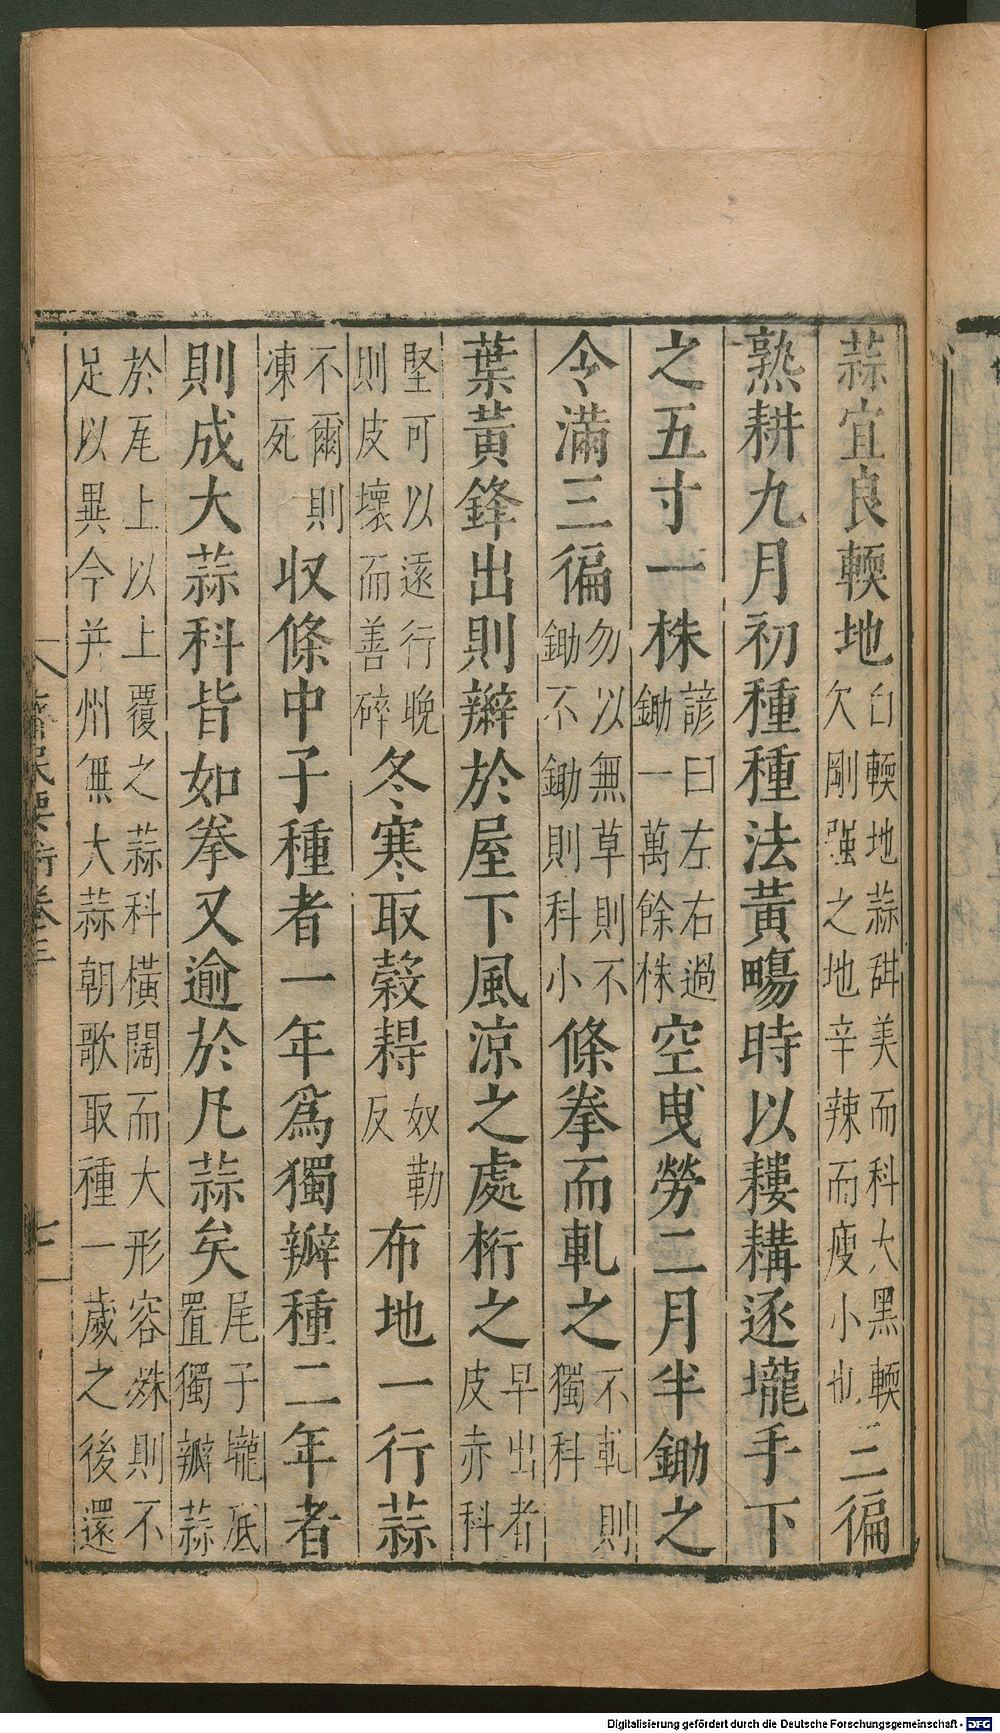 蒜宜良輭地白輭地蒜甜美而科大黑輭欠剛強之地辛辣而瘦小也三徧
熟耕九月初種種法黃塲時以耬耩逐壠手下
之五寸一株諺曰左右過鋤一萬餘株空曳勞二月半鋤之
令滿三徧勿以無草則不鋤不鋤則科小條拳而軋之不軋則獨科
葉黃鋒出則辮於屋下風涼之處桁之早出者皮赤科
堅可以遠行晚則皮壞而善碎冬寒取穀𥞩奴勒反布地一行蒜
不爾則凍死收條中子種者一年爲獨瓣種二年者
則成大蒜科皆如拳又逾於凡蒜矣尾子壠底置獨瓣蒜
於尾上以上覆之蒜科橫闊而大形容殊則不足以異今并州無大蒜朝歌取種一歲之後還
齊民要術卷三
七
Digitalisierung gefördert durch die Deutsche Forschungsgemeinschaft - DFG